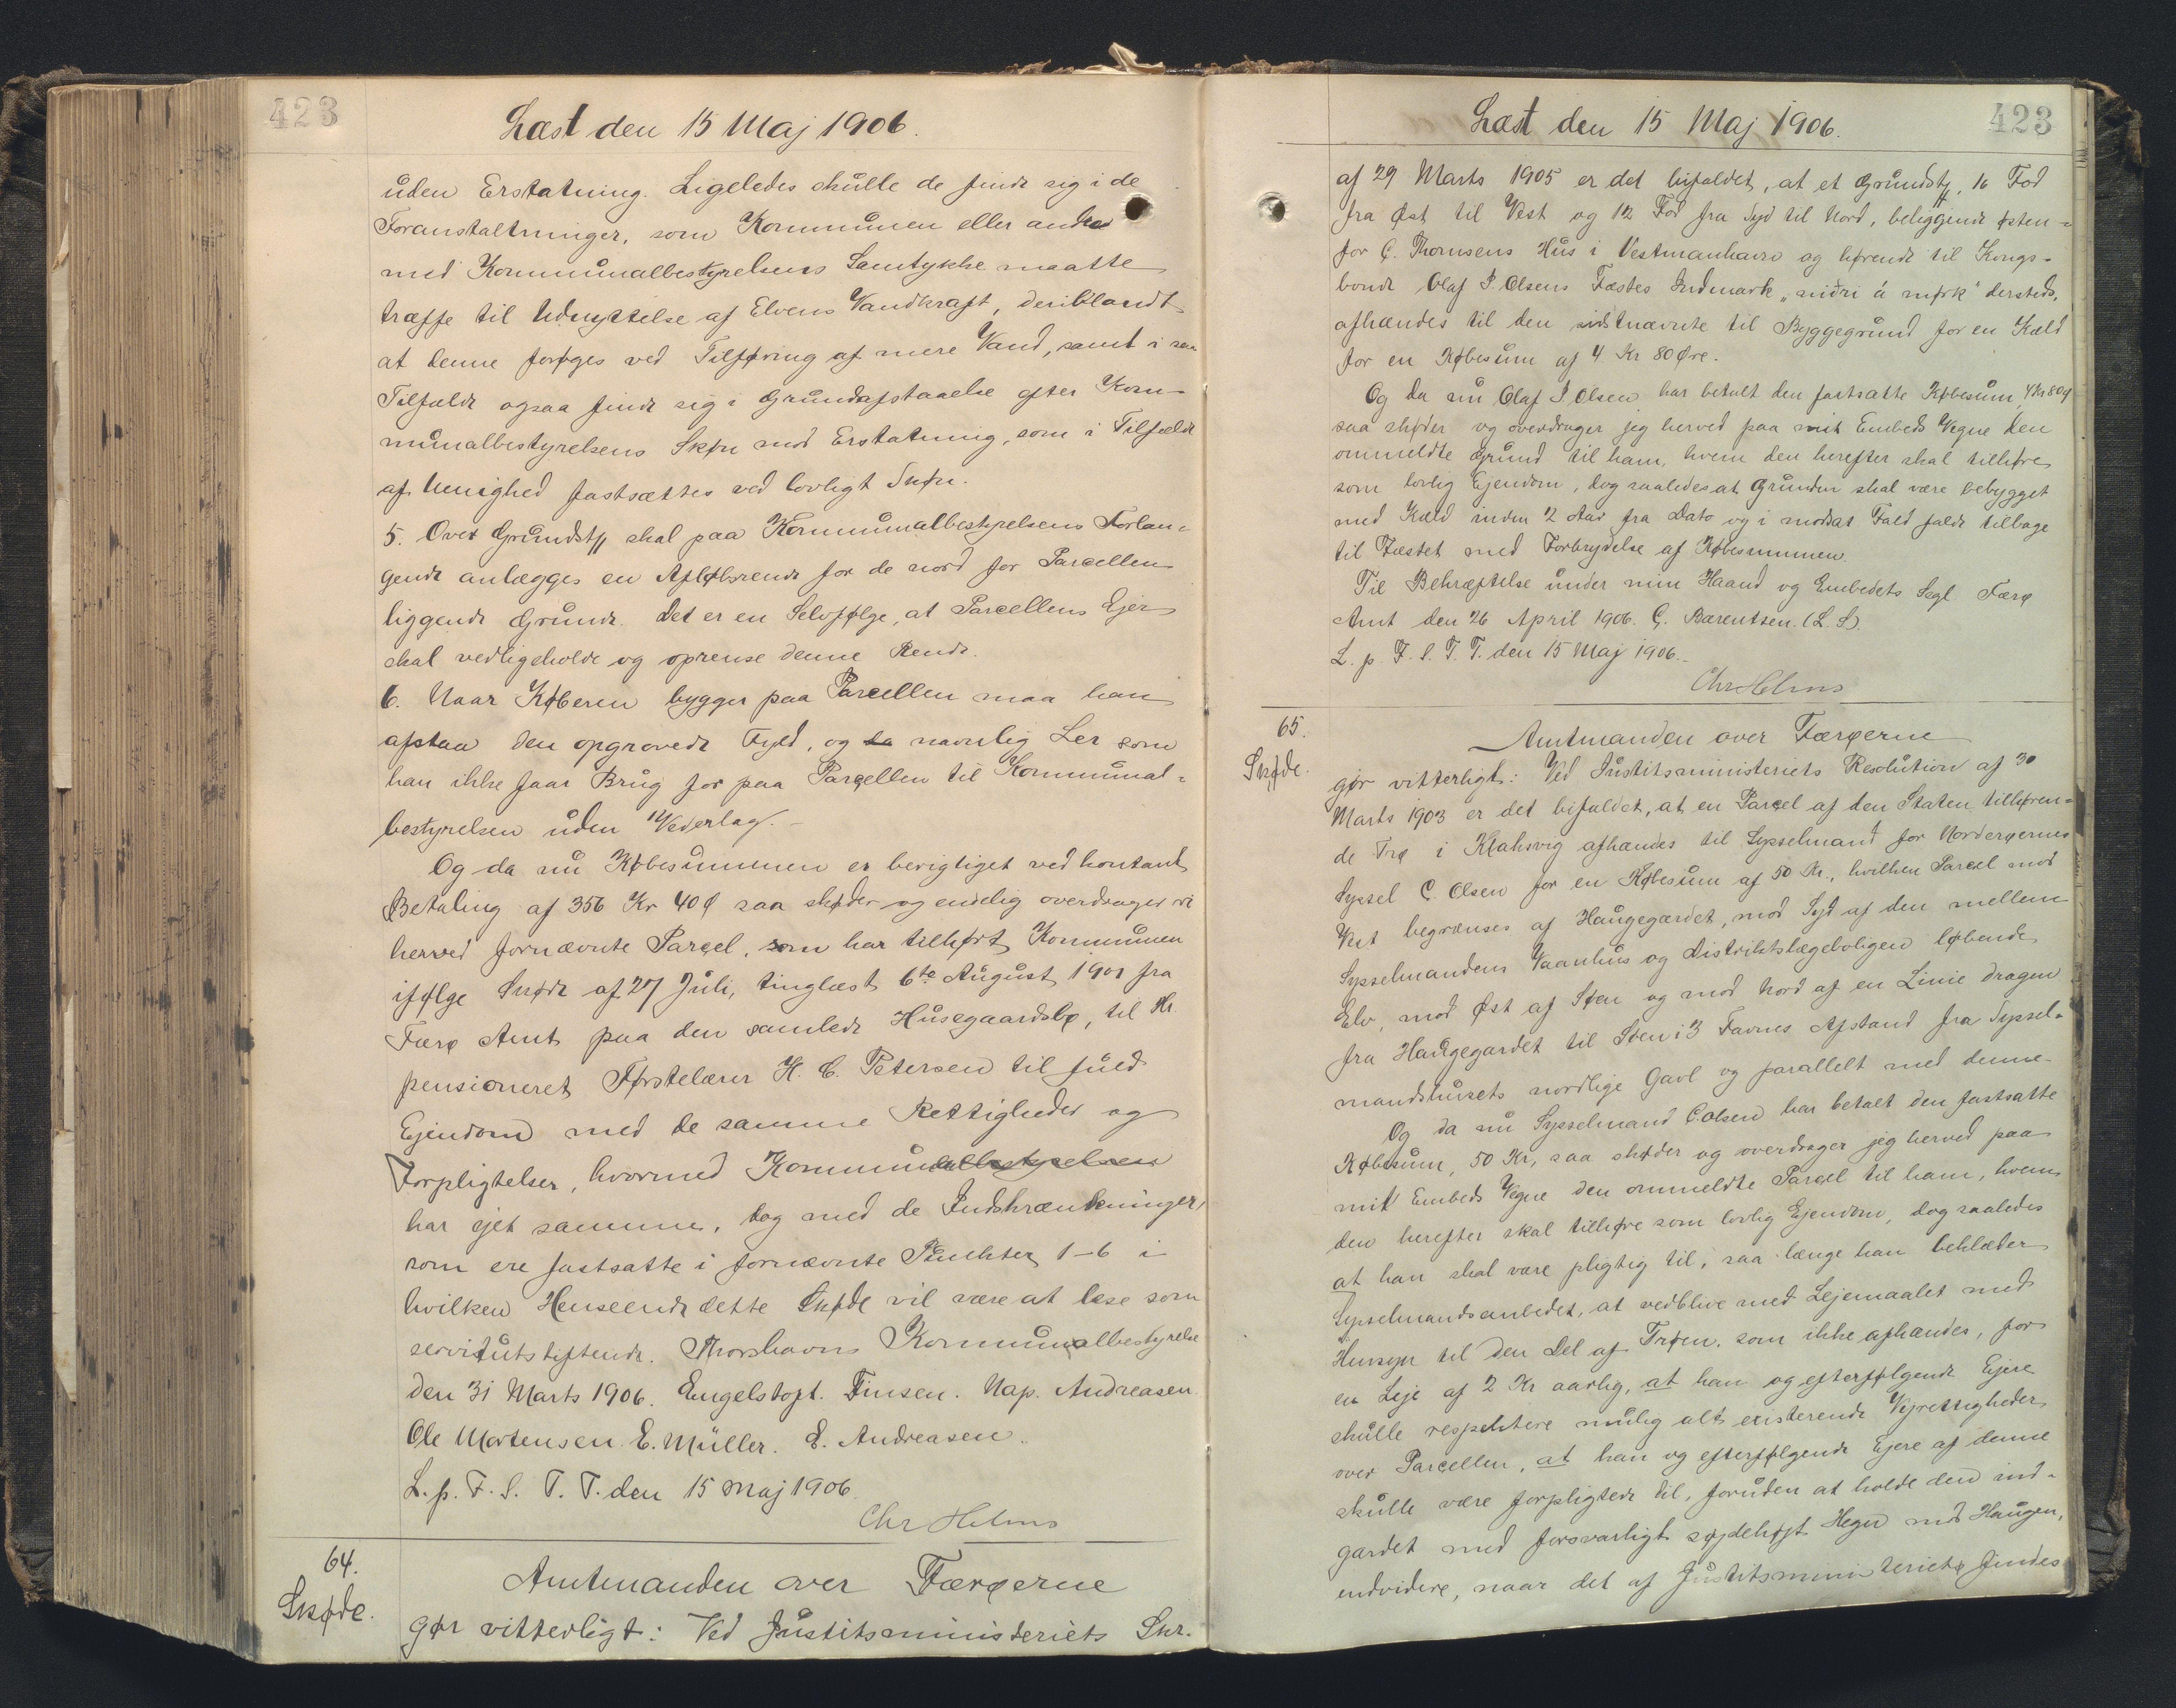 423
Læst den 15 Maj 1906.
uden Erstatning. Ligeledes skulle de finde sig i de
Foranstaltninger, som Kommunen eller andre
med Kommunalbestyrelsens Samtykke maatte
træffe til Udnyttelse af Elvens Vandkraft, deriblandt
at denne forøges ved Tilføring af mere Vand, samt i saa
Tilfælde ogsaa finde sig i Grundafstaaelse efter Kom-
munalbestyrelsens Skøn mod Erstatning, som i Tilfælde
af Uenighed fastsættes ved lovligt Skøn.
5. Over Grundst. skal paa Kommunalbestyrelsens Forlan-
gende anlægges en Afløbsrende for de nord for Parcellen
liggende Grunde. Det er en Selvfølge, at Parcellens Ejer
skal vedligeholde og oprense denne Rende.
6. Naar Køberen bygger paa Parcellen maa han
afstaa den opgravede Fyld, og da navnlig Ler som
han ikke faar Brug for paa Parcellen til Kommunal-
bestyrelsen uden Vederlag.-
Og da nu Købesummen er berigtiget ved kontant
Betaling af 356 Kr 40 Ø saa skøder og endelig overdrager vi
herved fornævnte Parcel, som har tilhørt Kommunen
ifølge Skøde af 27 Juli, tinglæst 6te August 1901 fra
Færø Amt paa den samlede Husegaardsbø, til Hr.
pensioneret Førstelærer H. C. Petersen til fuld
Ejendom med de samme Rettigheder og
Forpligtelser, hvormed Kommunalbestyrelsen
har ejet samme, dog med de Indskrænkninger,
som ere fastsatte i fornævnte Punkter 1-6 i
hvilken Henseende dette Skøde vil være at læse som
servitutstiftende. Thorshavns Kommunalbestyrelse
den 31 Marts 1906. Engelstoft. Finsen. Nap. Andreasen
Ole Mortensen E. Müller. E. Andreasen.
L. p. F. S. T. T. den 15 Maj 1906.
Chr Helms
64.
Skøde.
Amtmanden over Færøerne
gør vitterligt: Ved Justitsministeriets Skr.
Læst den 15 Maj 1906.
423
af 29 Marts 1905 er det bifaldet, at et Grundst., 16 Fod
fra Øst til Vest og 12 Fod fra Syd til Nord, beliggende østen-
for C. Thomsens Hus i Vestmanhavn og hørende til Kongs-
bonde Olaf J. Olsens Fæstes Indmark „niðri á mørk" dersteds,
afhændes til den sidstnævnte til Byggegrund for en Kæld
for en Købesum af 4 Kr 80 Øre.
Og da nu Olaf J. Olsen har betalt den fastsatte Købesum, 4 Kr 80 Ø
saa skøder og overdrager jeg herved paa mit Embeds Vegne den
ommeldte Grund til ham, hvem den herefter skal tilhøre
som lovlig Ejendom, dog saaledes at Grunden skal være bebygget
med Kæld inden 2 Aar fra Dato og i modsat Fald falde tilbage
til Fæstet med Forbrydelse af Købesummen.
Til Bekræftelse under min Haand og Embedets Segl. Færø
Amt den 26 April 1906. C. Bærentsen. (L. S).
L. p. F. S. T. T. den 15 Maj 1906.-
Chr Helms
65.
Skøde.
Amtmanden over Færøerne
gør vitterligt: Ved Justitsministeriets Resolution af 30
Marts 1903 er det bifaldet, at en Parcel af den Staten tilhøren-
de Trø i Klaksvig afhændes til Sysselmand for Norderøernes
Syssel C. Olsen for en Købesum af 50 Kr., hvilken Parcel mod
Vest begrænses af Haugegærdet, mod Syd af den mellem
Sysselmandens Vaanhus og Distriktslægeboligen løbende
Elv, mod Øst af Søen og mod Nord af en Linie dragen
fra Haugegærdet til Søen i 3 Favnes Afstand fra Syssel-
mandshusets nordlige Gavl og parallelt med denne
Og da nu Sysselmand C. Olsen har betalt den fastsatte
Købesum, 50 Kr, saa skøder og overdrager jeg herved paa
mit Embeds Vegne den ommeldte Parcel til ham, hvem
den herefter skal tilhøre som lovlig Ejendom, dog saaledes
at han skal være pligtig til, saa længe han beklæder
Sysselmandsembedet, at vedblive med Lejemaalet med
Hensyn til den Del af Trøen, som ikke afhændes, for
en Leje af 2 Kr aarlig, at han og efterfølgende Ejere
skulle respektere mulig alt existerende Vejrettigheder
over Parcellen, at han og efterfølgende Ejere af denne
skulle være forpligtede til, foruden at holde den ind-
gærdet med forsvarligt søjdehøjt Hegn mod Haugen,
endvidere, naar det af Justitsministeriets findes